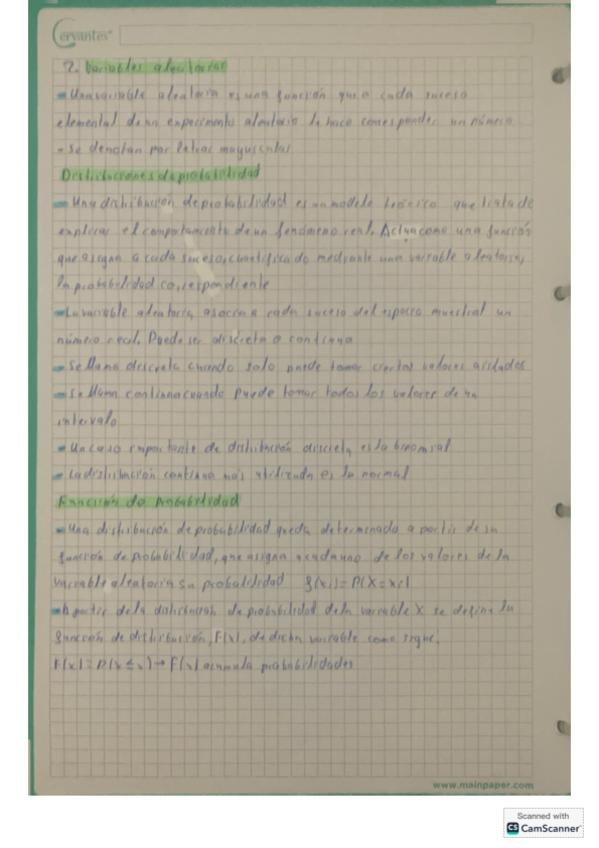 Cervantes
2. Variables aleatorias
- Una variable aleatoria es una función que a cada suceso
elemental de un experimento aleatorio le hace corresponder un número
- Se denotan por letras mayusculas
Distribuciones de probabilidad
- Una distribución de probabilidad es un modelo teórico que trata de
explicar el comportamiento de un fenómeno real. Actua como una función
que asigna a cada suceso, cuantificado mediante una variable aleatoria,
la probabilidad correspondiente
- La variable aleatoria asocia a cada suceso del espacio muestral un
número real. Puede ser discreta o continua
- Se llama discreta cuando solo puede tomar ciertos valores aislados
- Se llama continua cuando puede tomar todos los valores de un
intervalo
- Un caso importante de distribución discreta es la binomial
- La distribución continua más utilizada es la normal
Función de probabilidad
- Una distribución de probabilidad queda determinada a partir de su
función de probabilidad, que asigna a cada uno de los valores de la
variable aleatoria su probabilidad f(xi)=P(X=xi)
- A partir de la distribución de probabilidad de la variable X se define la
función de distribución, F(x), de dicha variable como sigue.
F(x)=P(X≤x)→F(x) acumula probabilidades
www.mainpaper.com
Scanned with
CS CamScanner